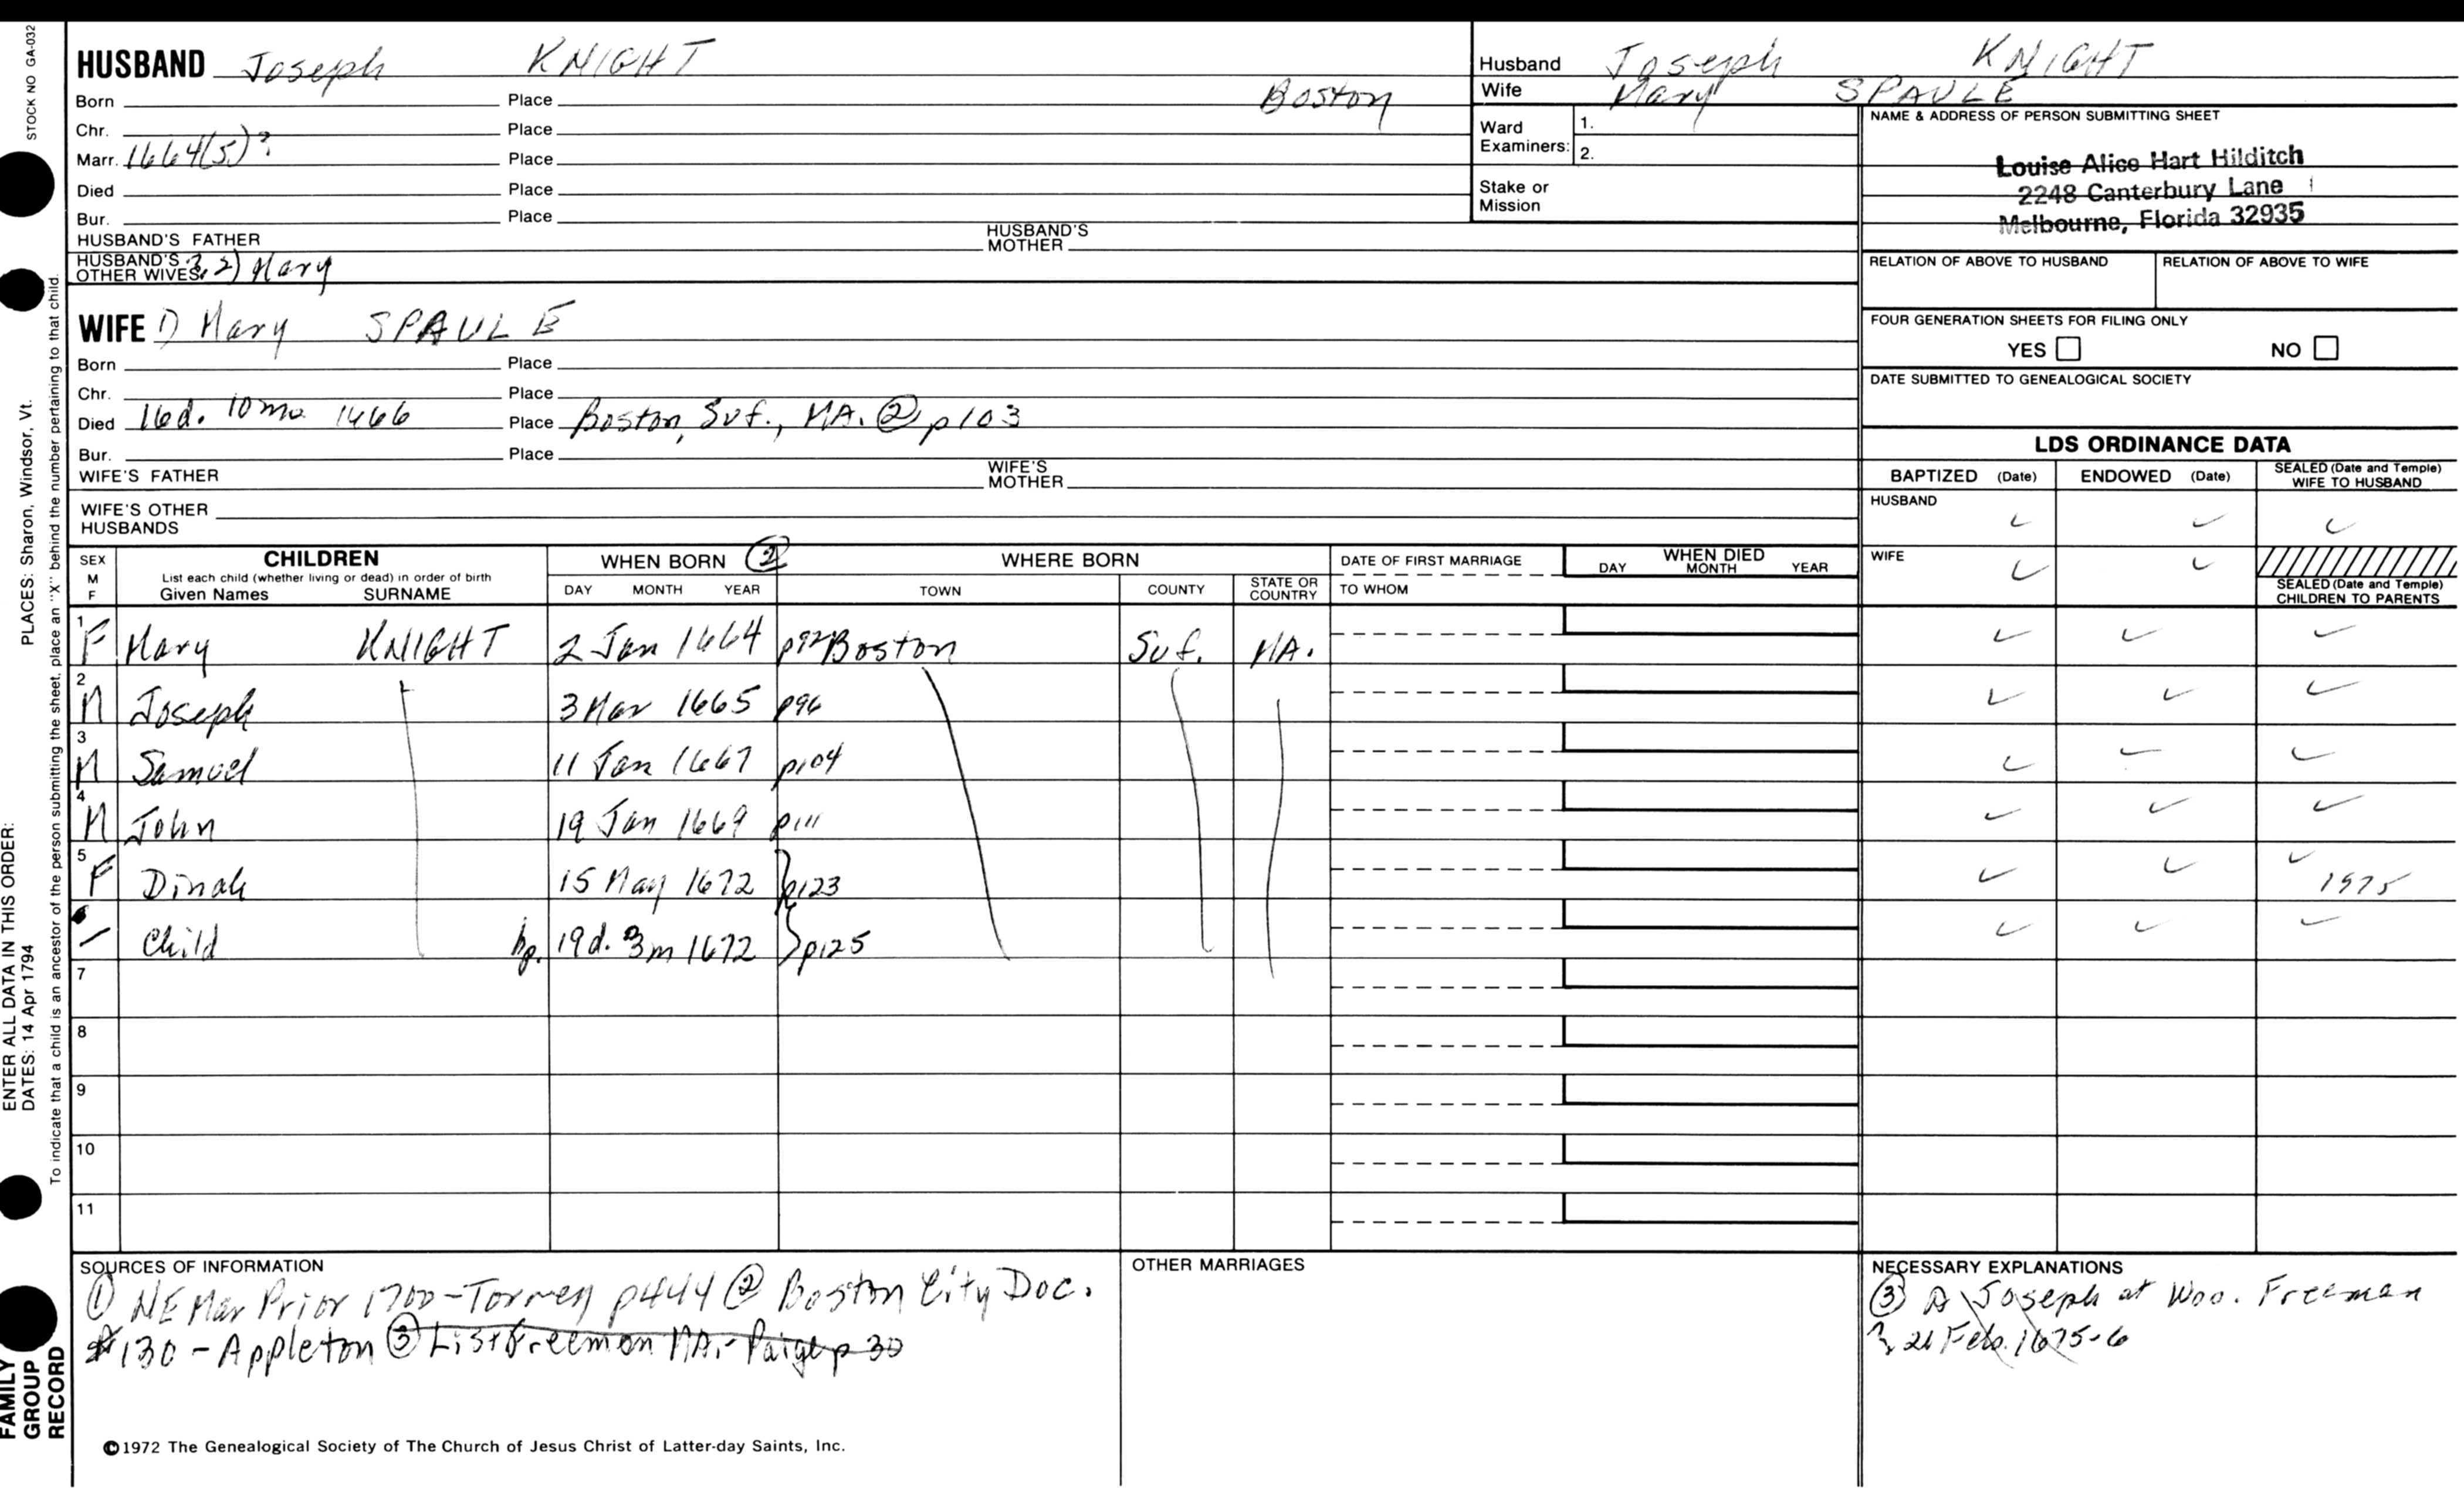 STOCK NO GA-032
HUSBAND Joseph KNIGHT
Born Place Boston
Chr. Place
Marr. 1664(5)? Place
Died Place
Bur. Place
HUSBAND'S FATHER HUSBAND'S MOTHER
HUSBAND'S OTHER WIVES ?, 2) Mary
Husband Joseph KNIGHT
Wife Mary SPAULE
Ward Examiners: 1.
2.
Stake or Mission
NAME & ADDRESS OF PERSON SUBMITTING SHEET
Louise Alice Hart Hilditch
2248 Canterbury Lane
Melbourne, Florida 32935
RELATION OF ABOVE TO HUSBAND RELATION OF ABOVE TO WIFE
FOUR GENERATION SHEETS FOR FILING ONLY
YES NO
DATE SUBMITTED TO GENEALOGICAL SOCIETY
WIFE 1) Mary SPAULE
Born Place
Chr. Place
Died 16d. 10mo. 1466 Place Boston, Suf., MA. ② p103
Bur. Place
WIFE'S FATHER WIFE'S MOTHER
WIFE'S OTHER HUSBANDS
LDS ORDINANCE DATA
BAPTIZED (Date) ENDOWED (Date) SEALED (Date and Temple) WIFE TO HUSBAND
HUSBAND ✓ ✓ ✓
WIFE ✓ ✓
SEALED (Date and Temple) CHILDREN TO PARENTS
SEX M F
CHILDREN
List each child (whether living or dead) in order of birth
Given Names SURNAME
WHEN BORN ②
DAY MONTH YEAR
WHERE BORN
TOWN COUNTY STATE OR COUNTRY
DATE OF FIRST MARRIAGE
TO WHOM
WHEN DIED
DAY MONTH YEAR
1 F Mary KNIGHT 2 Jan 1664 p92 Boston Suf. MA. ✓ ✓ ✓
2 M Joseph 3 Mar 1665 p96 ✓ ✓ ✓
3 M Samuel 11 Jan 1667 p104 ✓ ✓ ✓
4 M John 19 Jan 1669 p111 ✓ ✓ ✓
5 F Dinah 15 May 1672 p123 ✓ ✓ ✓ 1975
– Child bp. 19d. 3m 1672 p125 ✓ ✓ ✓
7
8
9
10
11
SOURCES OF INFORMATION
① NE Mar Prior 1700 - Torrey p444 ② Boston City Doc.
#130 - Appleton ③ List Freemen MA. - Paige p 30
OTHER MARRIAGES
NECESSARY EXPLANATIONS
③ A Joseph at Woo. Freeman
? 21 Feb. 1675-6
©1972 The Genealogical Society of The Church of Jesus Christ of Latter-day Saints, Inc.
PLACES: Sharon, Windsor, Vt.
ENTER ALL DATA IN THIS ORDER:
DATES: 14 Apr 1794
To indicate that a child is an ancestor of the person submitting the sheet, place an "X" behind the number pertaining to that child.
FAMILY
GROUP
RECORD